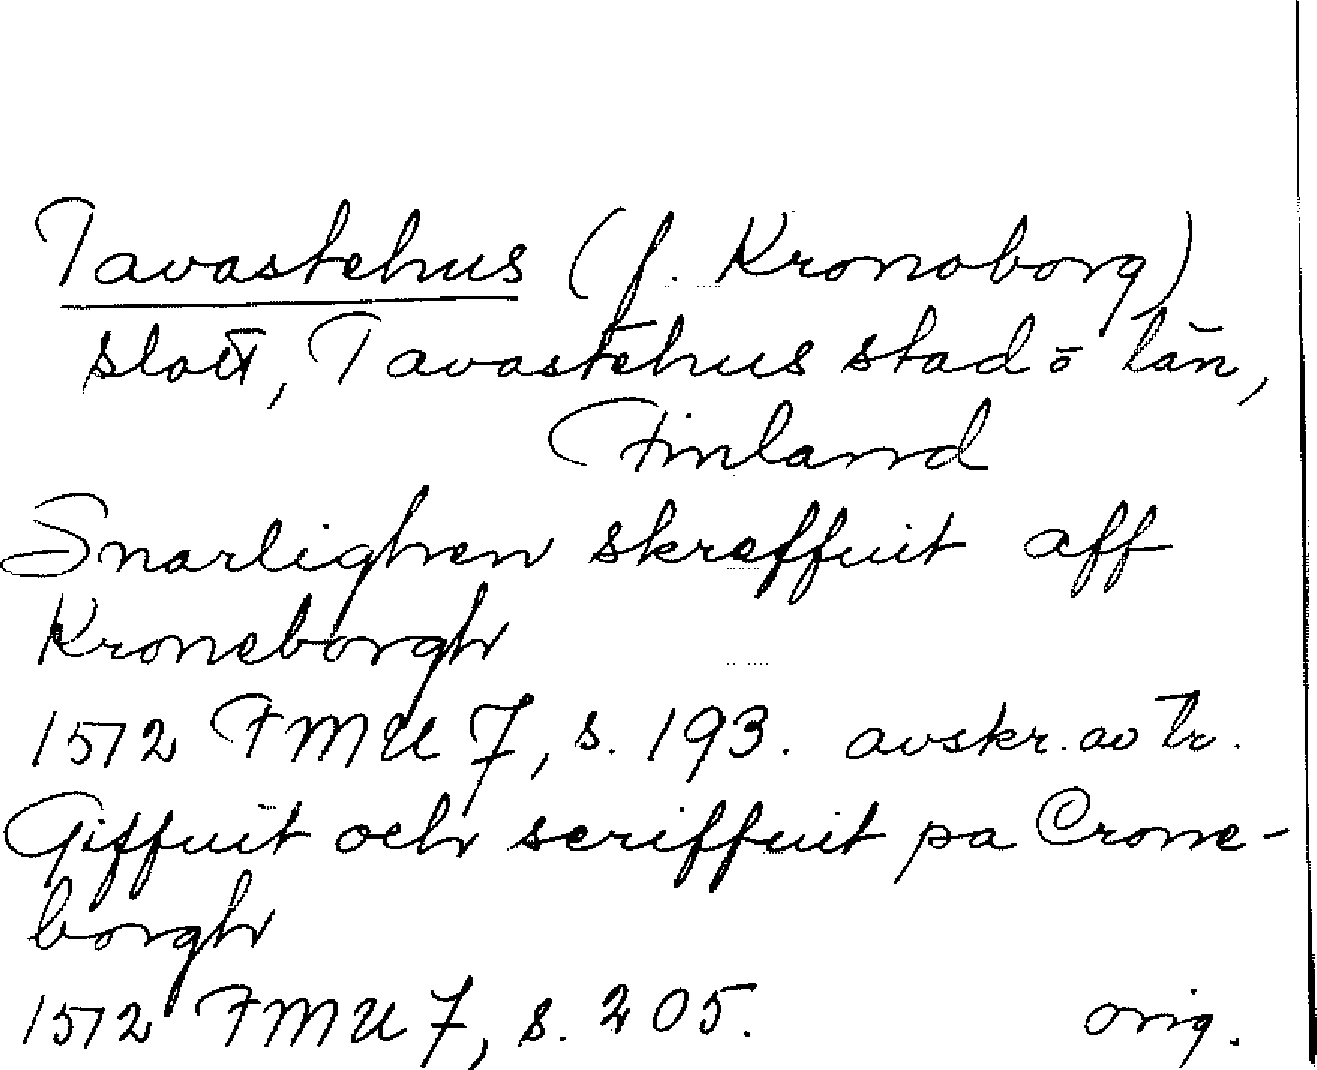 Tavastehus (f. Kronoborg)
slott, Tavastehus stad o län,
Finland
Snarlighen skreffuit aff
Kroneborgh
1572 FMU 7, s. 193. avskr. av tr.
Giffuit och scriffuit pa Crone-
borgh
1572 FMU 7, s. 205. orig.